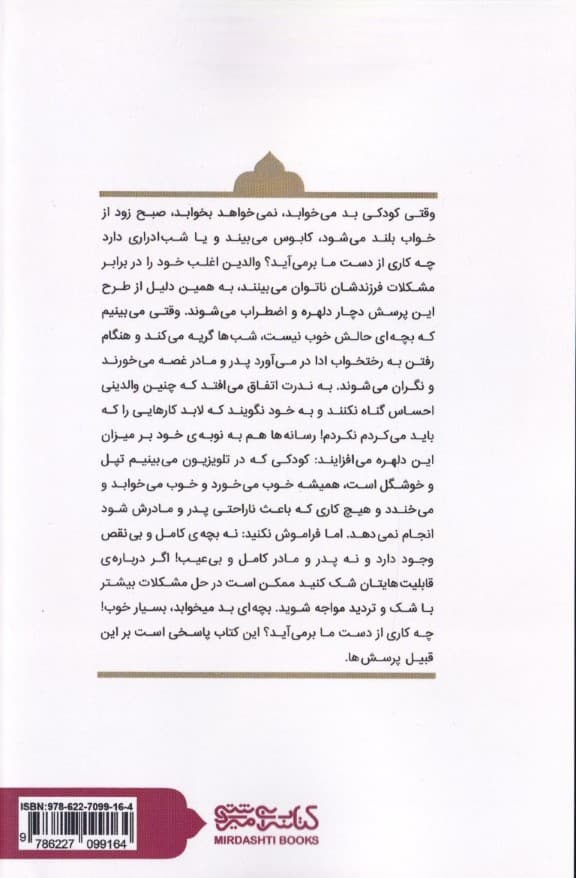 وقتی کودکی بد می‌خوابد، نمی‌خواهد بخوابد، صبح زود از
خواب بلند می‌شود، کابوس می‌بیند و یا شب‌ادراری دارد
چه کاری از دست ما برمی‌آید؟ والدین اغلب خود را در برابر
مشکلات فرزندشان ناتوان می‌بینند، به همین دلیل از طرح
این پرسش دچار دلهره و اضطراب می‌شوند. وقتی می‌بینیم
که بچه‌ای حالش خوب نیست، شب‌ها گریه می‌کند و هنگام
رفتن به رختخواب ادا در می‌آورد پدر و مادر غصه می‌خورند
و نگران می‌شوند. به ندرت اتفاق می‌افتد که چنین والدینی
احساس گناه نکنند و به خود نگویند که لابد کارهایی را که
باید می‌کردم نکردم! رسانه‌ها هم به نوبه‌ی خود بر میزان
این دلهره می‌افزایند: کودکی که در تلویزیون می‌بینیم تپل
و خوشگل است، همیشه خوب می‌خورد و خوب می‌خوابد و
می‌خندد و هیچ کاری که باعث ناراحتی پدر و مادرش شود
انجام نمی‌دهد. اما فراموش نکنید: نه بچه‌ی کامل و بی‌نقص
وجود دارد و نه پدر و مادر کامل و بی‌عیب! اگر درباره‌ی
قابلیت‌هایتان شک کنید ممکن است در حل مشکلات بیشتر
با شک و تردید مواجه شوید. بچه‌ای بد میخوابد، بسیار خوب!
چه کاری از دست ما برمی‌آید؟ این کتاب پاسخی است بر این
قبیل پرسش‌ها.
ISBN:978-622-7099-16-4
9 786227 099164
کتابسرای میردشتی
MIRDASHTI BOOKS